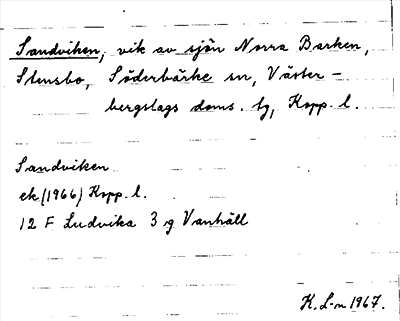 Sandviken, vik av sjön Norra Barken,
Stensbo, Söderbärke sn, Väster-
bergslags doms. tg, Kopp. l.
Sandviken
ek (1966) Kopp. l.
12 F Ludvika 3 g Vanhäll
K. L-n 1967.